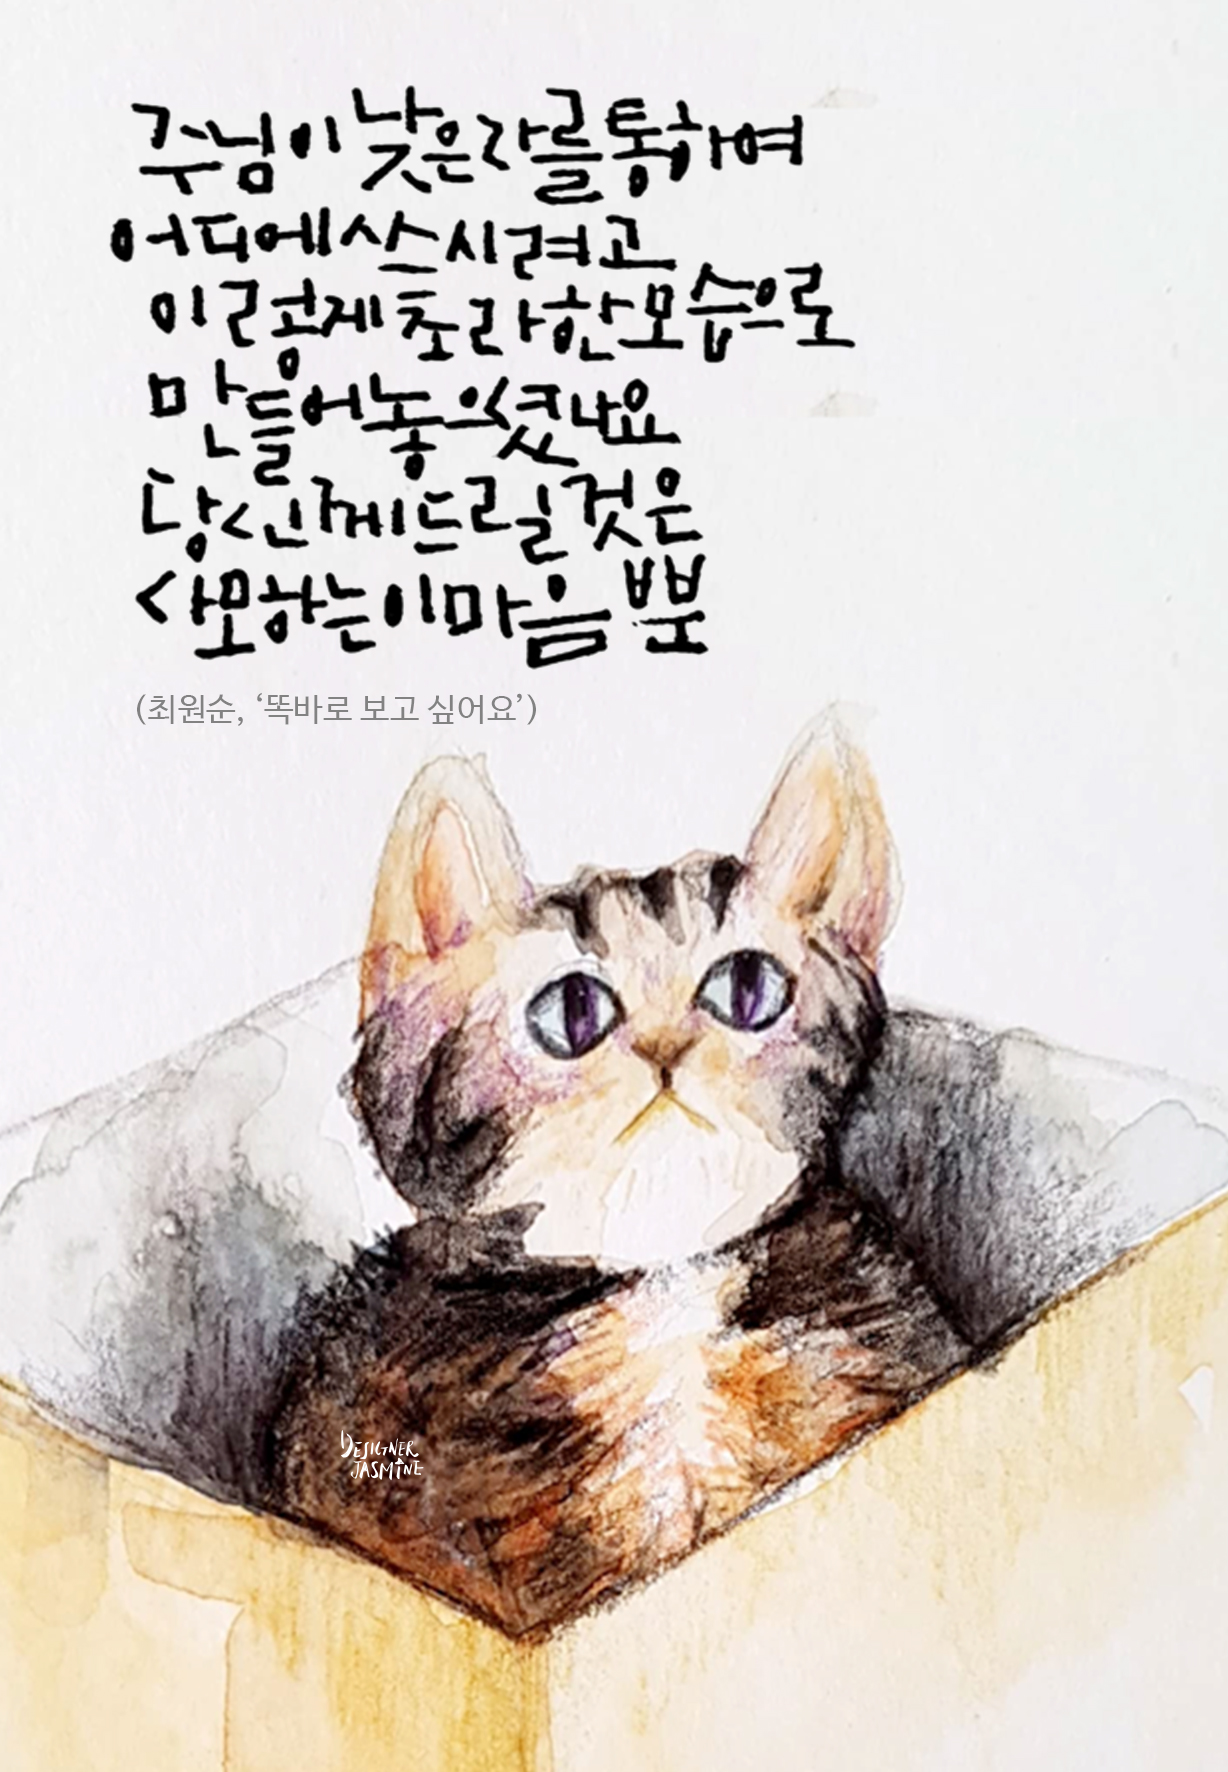 주님이 낮은 라를 통하여
어디에 쓰시려고
이렇게 초라한 모습으로
만들어 놓으셨나요
당신께 드릴 것은
사모하는 이 마음 뿐
(최원순, ‘똑바로 보고 싶어요’)
DESIGNER
JASMINE